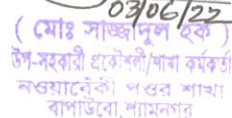 03/06/22
( মোঃ সাজ্জাদুল হক )
উপ-সহকারী প্রকৌশলী/শাখা কর্মকর্তা
নওয়াবেঁকী পওর শাখা
বাপাউবো, শ্যামনগর